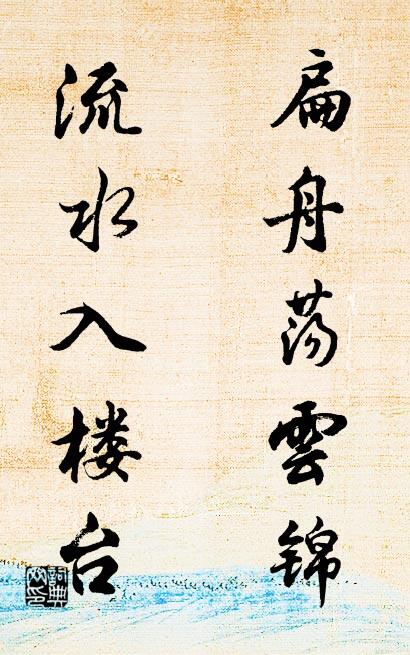 扁舟荡雲锦
流水入楼台